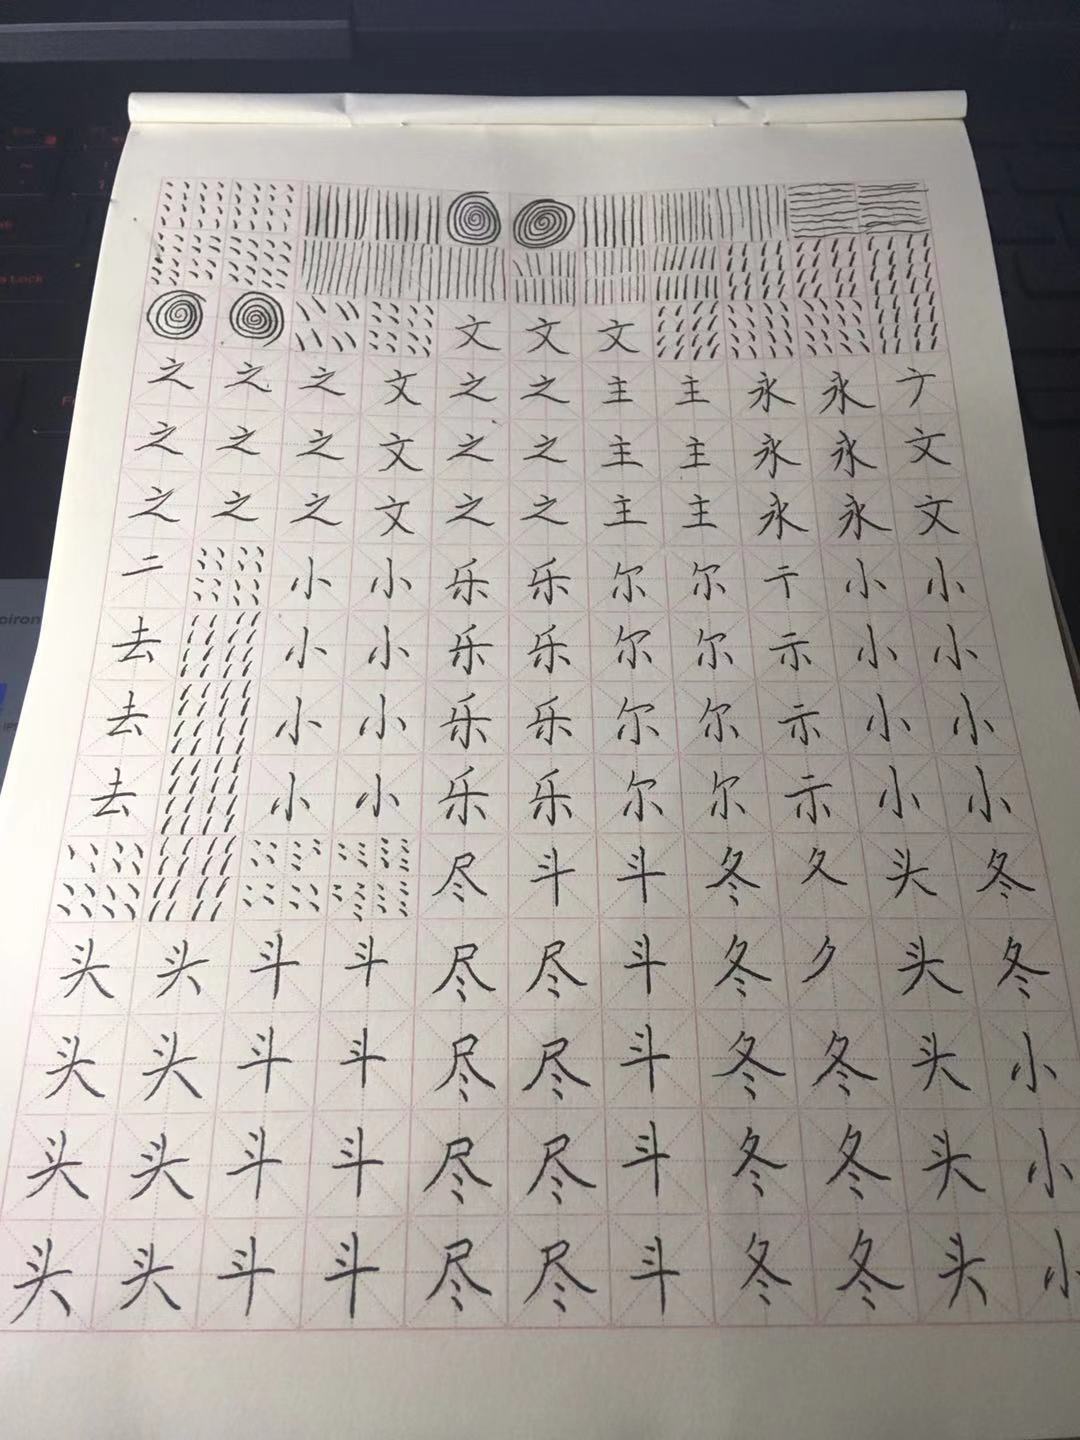 文 文 文
之 之 之 文 之 之 主 主 永 永 亠
之 之 之 文 之 之 主 主 永 永 文
之 之 之 文 之 之 主 主 永 永 文
二 小 小 乐 乐 尔 尔 亍 小 小
去 小 小 乐 乐 尔 尔 示 小 小
去 小 小 乐 乐 尔 尔 示 小 小
去 小 小 乐 乐 尔 尔 示 小 小
尽 斗 斗 冬 夂 头 冬
头 头 斗 斗 尽 尽 斗 冬 头 冬
头 头 斗 斗 尽 尽 斗 冬 冬 头 小
头 头 斗 斗 尽 尽 斗 冬 冬 头 小
头 头 斗 斗 尽 尽 斗 冬 冬 头 小